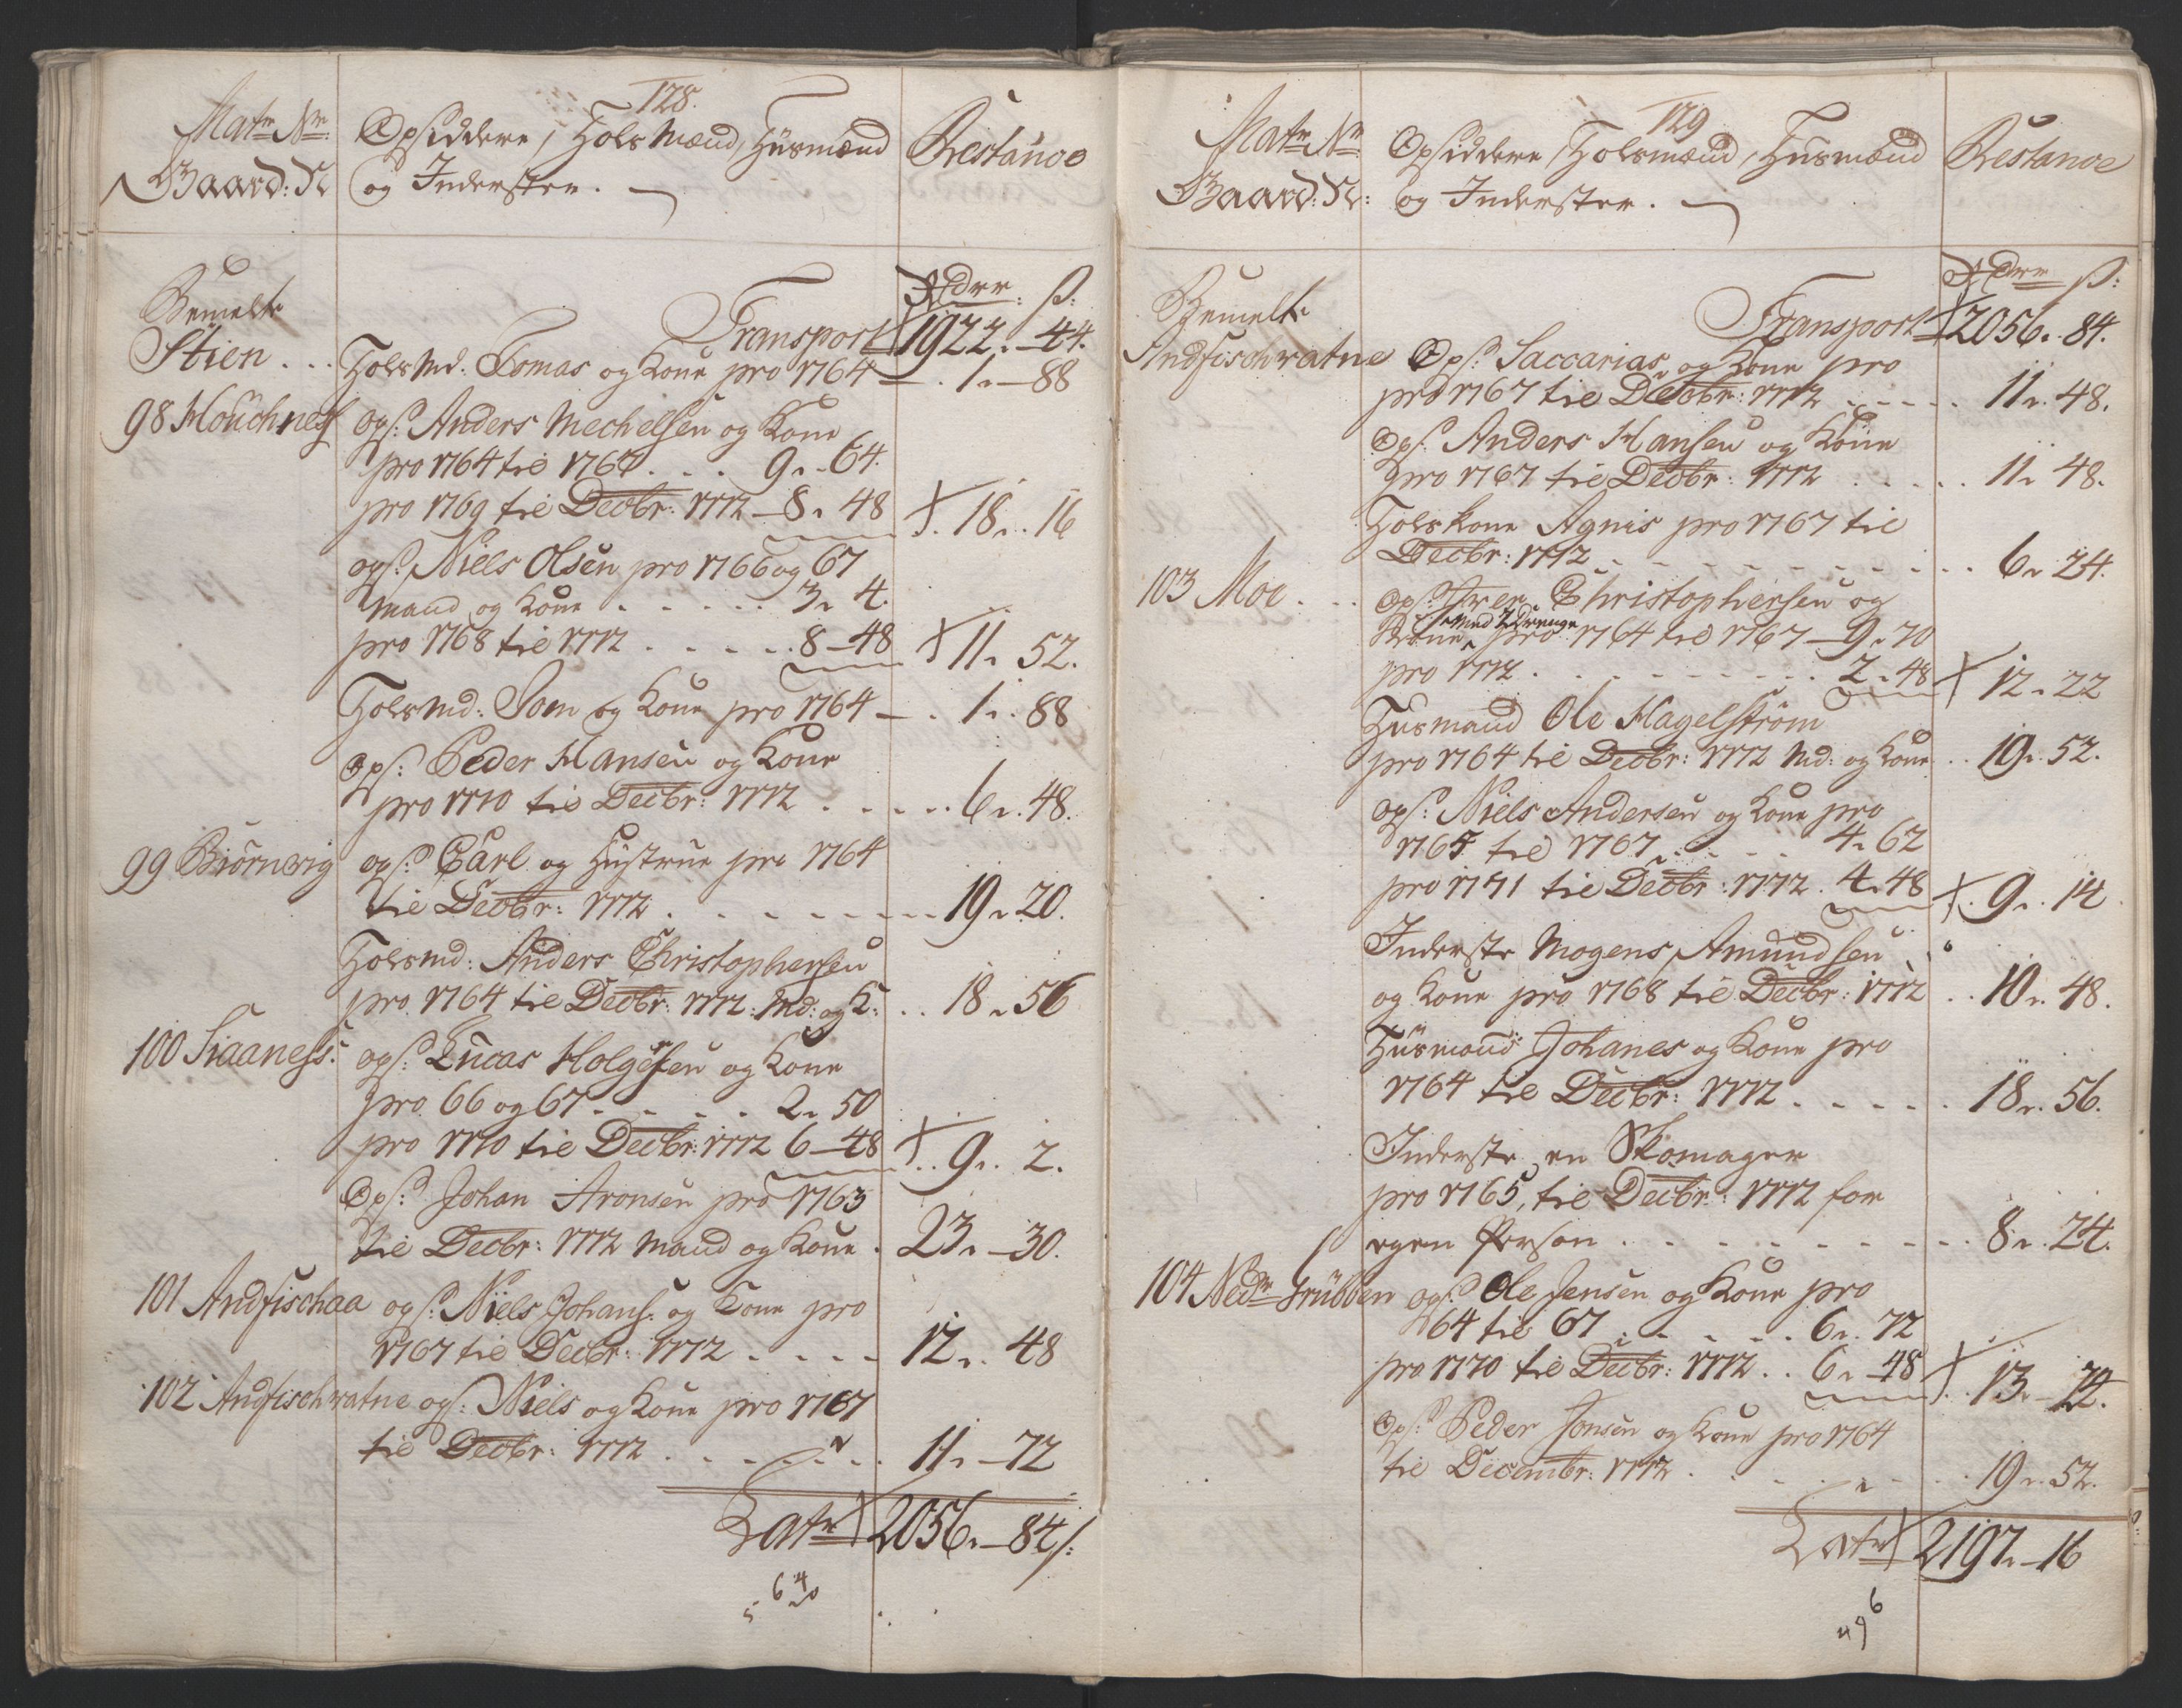 128.
Matr Nr: Opsiddere, Folsmænd, Huusmænd Restance
Gaard: N og Inderster.
Rdrr: s:
Bemelte Transport 1922. 44.
Stien . . . Folsmd: Tomas og Kone pro 1764 . 1. 88
98 Houchness ops: Anders Mechelsen og Kone
pro 1764 til 1767 . . . 9. 64.
pro 1769 til Decbr: 1772 8. 48 18. 16
ops: Niels Olsen pro 1766 og 67
Mand og Kone . . . . . 3. 4.
pro 1768 til 1772 . . . . . 8 48 11. 52.
Folsmd: Jom og Kone pro 1764 . 1. 88
Ops: Peder Hansen og Kone
pro 1770 til Decbr: 1772 . . . . . 6. 48.
99 Biörnwig ops: Carl og Hustrue pro 1764
til Decbr: 1772 . . . . . . . 19. 20.
Folsmd: Anders Christophersen
pro 1764 til Decbr: 1772. Md: og K: . . 18. 56
100 Siaaness. ops: Lucas Holgersen og Kone
pro 66 og 67 . . . . . 2. 50
pro 1770 til Decbr: 1772 6 48 9. 2.
Ops: Johan Aronsen pro 1763
til Decbr: 1772 Mand og Kone . 23. 30.
101 Andfischaa ops: Niels Johans: og Kone pro
1767 til Decbr: 1772 . . . . 12. 48
102 Andfischvatne ops: Niels og Kone pro 1767
til Decbr: 1772 . . . . . . . 11. 72
Late 2056. 84 s:
129
Matr Nr Opsiddere, Folsmænd, Huusmænd Restance
Gaard: N: og Inderster.
Rdrr s:
Bemelte Transport 2056. 84.
Andfischvatne Ops: Saccarias og Kone pro
pro 1767 til Decbr: 1772 . . . . . 11. 48.
Ops: Anders Hansen og Kone
pro 1767 til Decbr: 1772 . . . . . 11. 48.
Fols Kone Agnis pro 1767 til
Decbr: 1772 . . . . . . . . . . 6. 24.
103 Moe . . . Ops: Iver Christophersen og
Kone med 2 Drenge pro 1764 til 1767 9. 70
pro 1772 . . . . . . . . . 2. 48 12. 22
Huusmand Ole Hagelström
pro 1764 til Decbr: 1772 Md: og Kone . . 19. 52.
ops: Niels Andersen og Kone pro
1765 til 1767 . . . . 4. 62
pro 1771 til Decbr: 1772 . 4. 48 9. 14.
Inderste Mogens Amundsen
og Kone pro 1768 til Decbr: 1772 . . 10. 48.
Huusmand Johanes og Kone pro
1764 til Decbr: 1772 . . . . . 18. 56.
Inderste en Skomager
pro 1765, til Decbr: 1772 for
egen Person . . . . . . . . . . 8. 24.
104 Nedr Grübben ops: Ole Jensen og Kone pro
64 til 67 . . . . . . 6. 72
pro 1770 til Decbr: 1772 . . 6. 48 13. 24.
Ops: Peder Jonsen og Kone pro 1764
til Decembr: 1772 . . . . . . . 19. 52.
Late 2197. 16